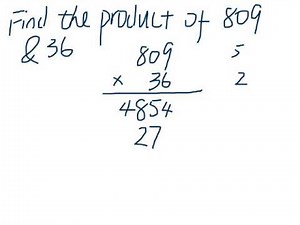 Find the product of 809
& 36
809 5
× 36 2
4854
27